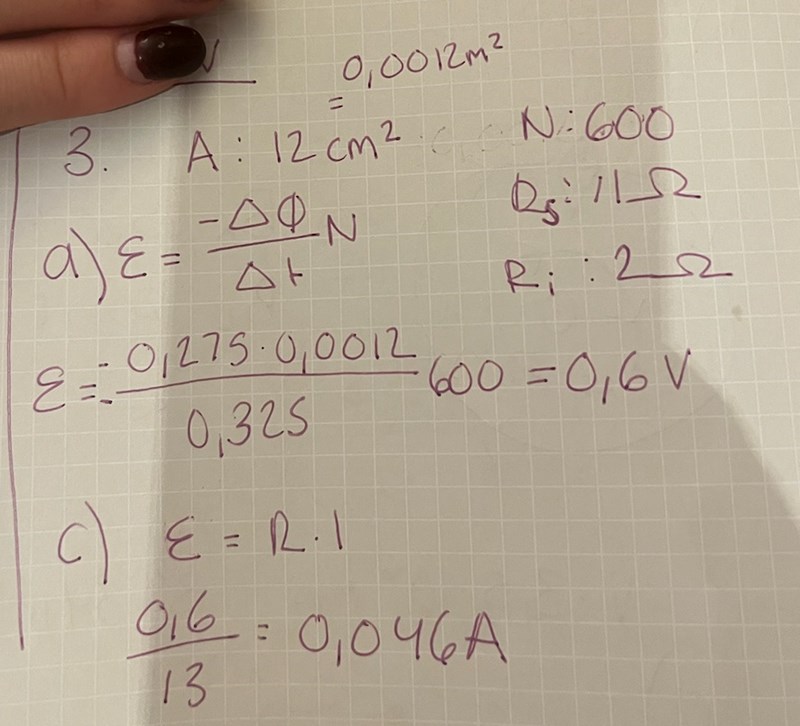 = 0,0012m²
3. A : 12 cm² N : 600
Rs : 11 Ω
a) ε = -ΔΦ/Δt N
Ri : 2 Ω
ε = - 0,275 · 0,0012/0,325 600 = 0,6 V
c) ε = R · I
0,6/13 = 0,046A